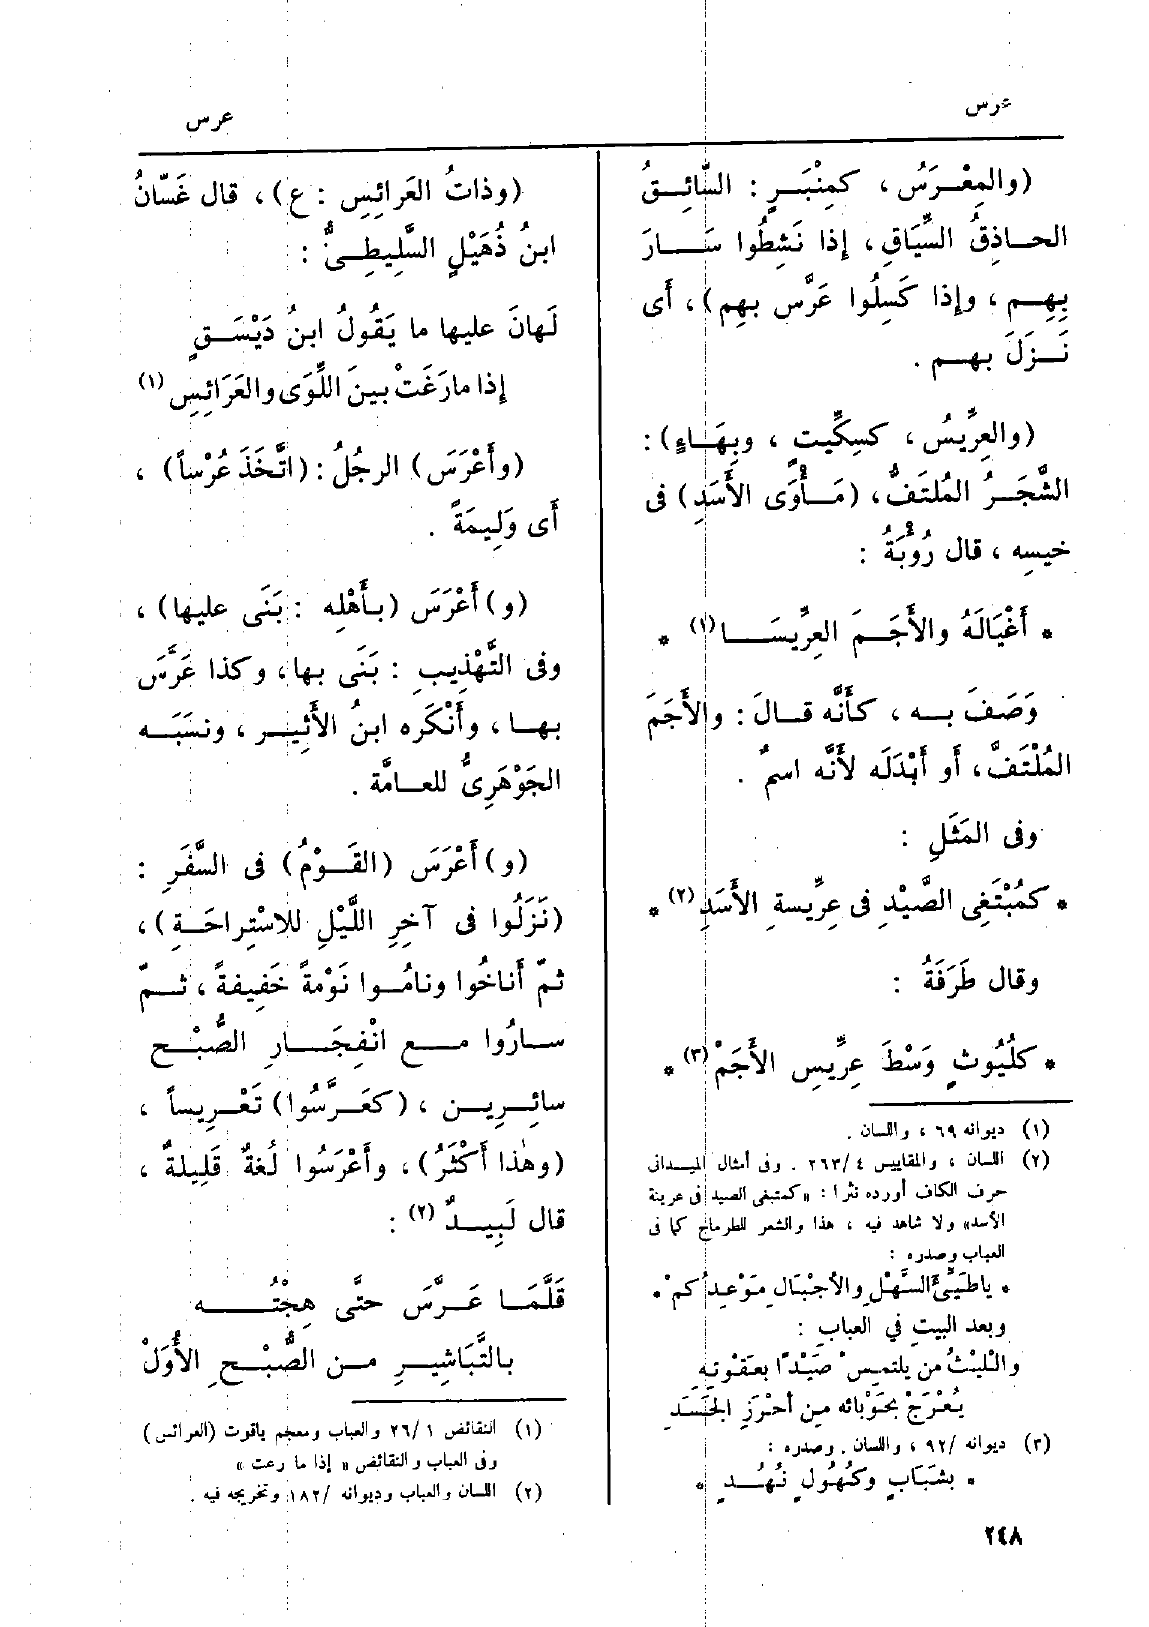 عرس
عرس
(والمِعْرَسُ ، كمِنْبَرٍ : السّائِقُ
الحاذِقُ السِّيَاقِ ، إذا نَشِطُوا سَارَ
بِهِم ، وإذا كَسِلُوا عَرَّسَ بهِم) ، أَى
نَزَلَ بهم .
(والعِرِّيسُ ، كسِكِّيتٍ ، وبِهَاءٍ) :
الشَّجَرُ المُلتَفُّ ، (مَأْوَى الأَسَدِ) فى
خيسِه ، قال رُؤْبَةُ :
* أَغْيَالَهُ والأَجَمَ العِرِّيسَا(١) *
وَصَفَ به ، كأَنَّه قالَ : والأَجَمَ
المُلْتَفَّ ، أَو أَبْدَلَه لأَنَّه اسمٌ .
وفى المَثَلِ :
* كمُبْتَغِى الصَّيْدِ فى عِرِّيسةِ الأَسَدِ(٢) *
وقال طَرَفَةُ :
* كلُيُوثٍ وَسْطَ عِرِّيسِ الأَجَمْ(٣) *
(١) ديوانه ٦٩ ، واللسان .
(٢) اللسان ، والمقاييس ٤/ ٢٦٣ . وفى أمثال الميدانى
حرف الكاف أورده نثرا : «كمبتغى الصيد فى عرينة
الأسد» ولا شاهد فيه ، هذا والشعر للطرماح كما فى
العباب وصدره :
* ياطَيِّئَ السَّهْلِ والأجْبالِ مَوْعِدُكمْ *
وبعد البيتِ في العبابِ :
واللّيْثُ من يلتمِسْ صَيْدًا بعَقْوتِهِ
يُعْرَجْ بحَوْبائه مِن أحْرَزِ الجَسَدِ
(٣) ديوانه /٩٢ ، واللسان . وصدره :
* بشَبَابٍ وكُهُولٍ نُهُدٍ *
(وذاتُ العَرائِسِ : ع) ، قال غَسّانُ
ابنُ ذُهَيْلٍ السَّلِيطِىُّ :
لَهانَ عليها ما يَقُولُ ابنُ دَيْسَقٍ
إذا مارَغَتْ بينَ اللِّوَى والعَرَائِسِ(١)
(وأَعْرَسَ) الرجُلُ : (اتَّخَذَ عُرْساً) ،
أَى وَلِيمَةً .
(و) أَعْرَسَ (بأَهْلِه : بَنَى عليها) ،
وفى التَّهْذِيبِ : بَنَى بها ، وكذا عَرَّسَ
بها ، وأَنْكَره ابنُ الأَثِيرِ ، ونسَبَه
الجَوْهَرِىُّ للعامَّة .
(و) أَعْرَسَ (القَوْمُ) فى السَّفَرِ :
(نَزَلُوا فى آخِرِ اللَّيْلِ للاسْتِراحَةِ) ،
ثمّ أَناخُوا ونامُوا نَوْمةً خَفِيفةً ، ثمّ
سارُوا مع انْفِجَارِ الصُّبْحِ
سائِرِين ، (كعَرَّسُوا) تَعْرِيساً ،
(وهٰذا أَكْثَرُ) ، وأَعْرَسُوا لُغةٌ قَلِيلةٌ ،
قال لَبِيدٌ(٢) :
قَلَّمَا عَرَّسَ حتَّى هِجْتُه
بالتَّبَاشِيرِ من الصُّبْحِ الأُوَلْ
(١) النقائض ١ /٢٦ والعباب ومعجم ياقوت (العرائس)
وفى العباب والنقائض « إذا ما رعت »
(٢) اللسان والعباب وديوانه /١٨٢ وتخريجه فيه .
٢٤٨